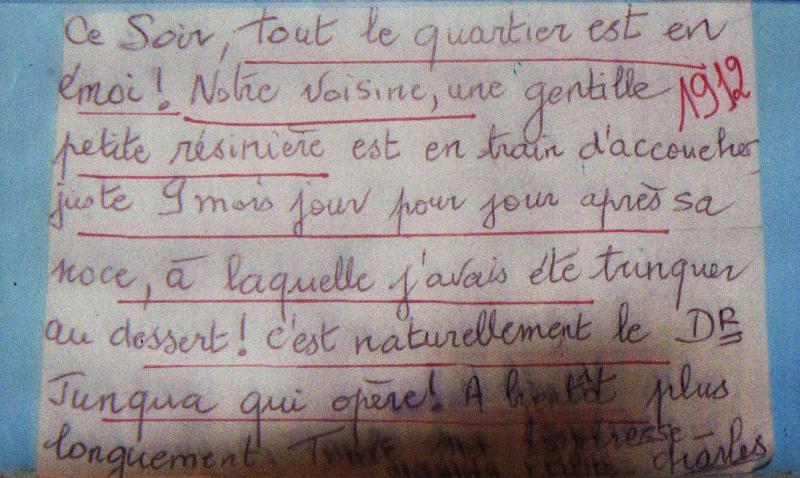 Ce Soir, tout le quartier est en
émoi! Notre Voisine, une gentille 1912
petite résinière est en train d'accoucher,
juste 9 mois jour pour jour après sa
noce, à laquelle j'avais été trinquer
au dessert! C'est naturellement le DR
Junqua qui opère! A bientôt plus
longuement. Toute ma tendresse Charles